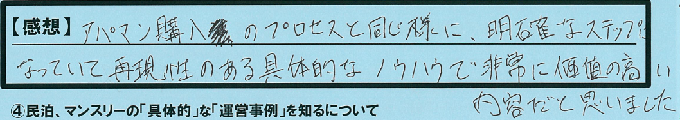 【感想】アパマン購入のプロセスと同じ様に、明確なステップに
なっていて再現性のある具体的なノウハウで非常に価値の高い
内容だと思いました
④民泊、マンスリーの「具体的」な「運営事例」を知るについて